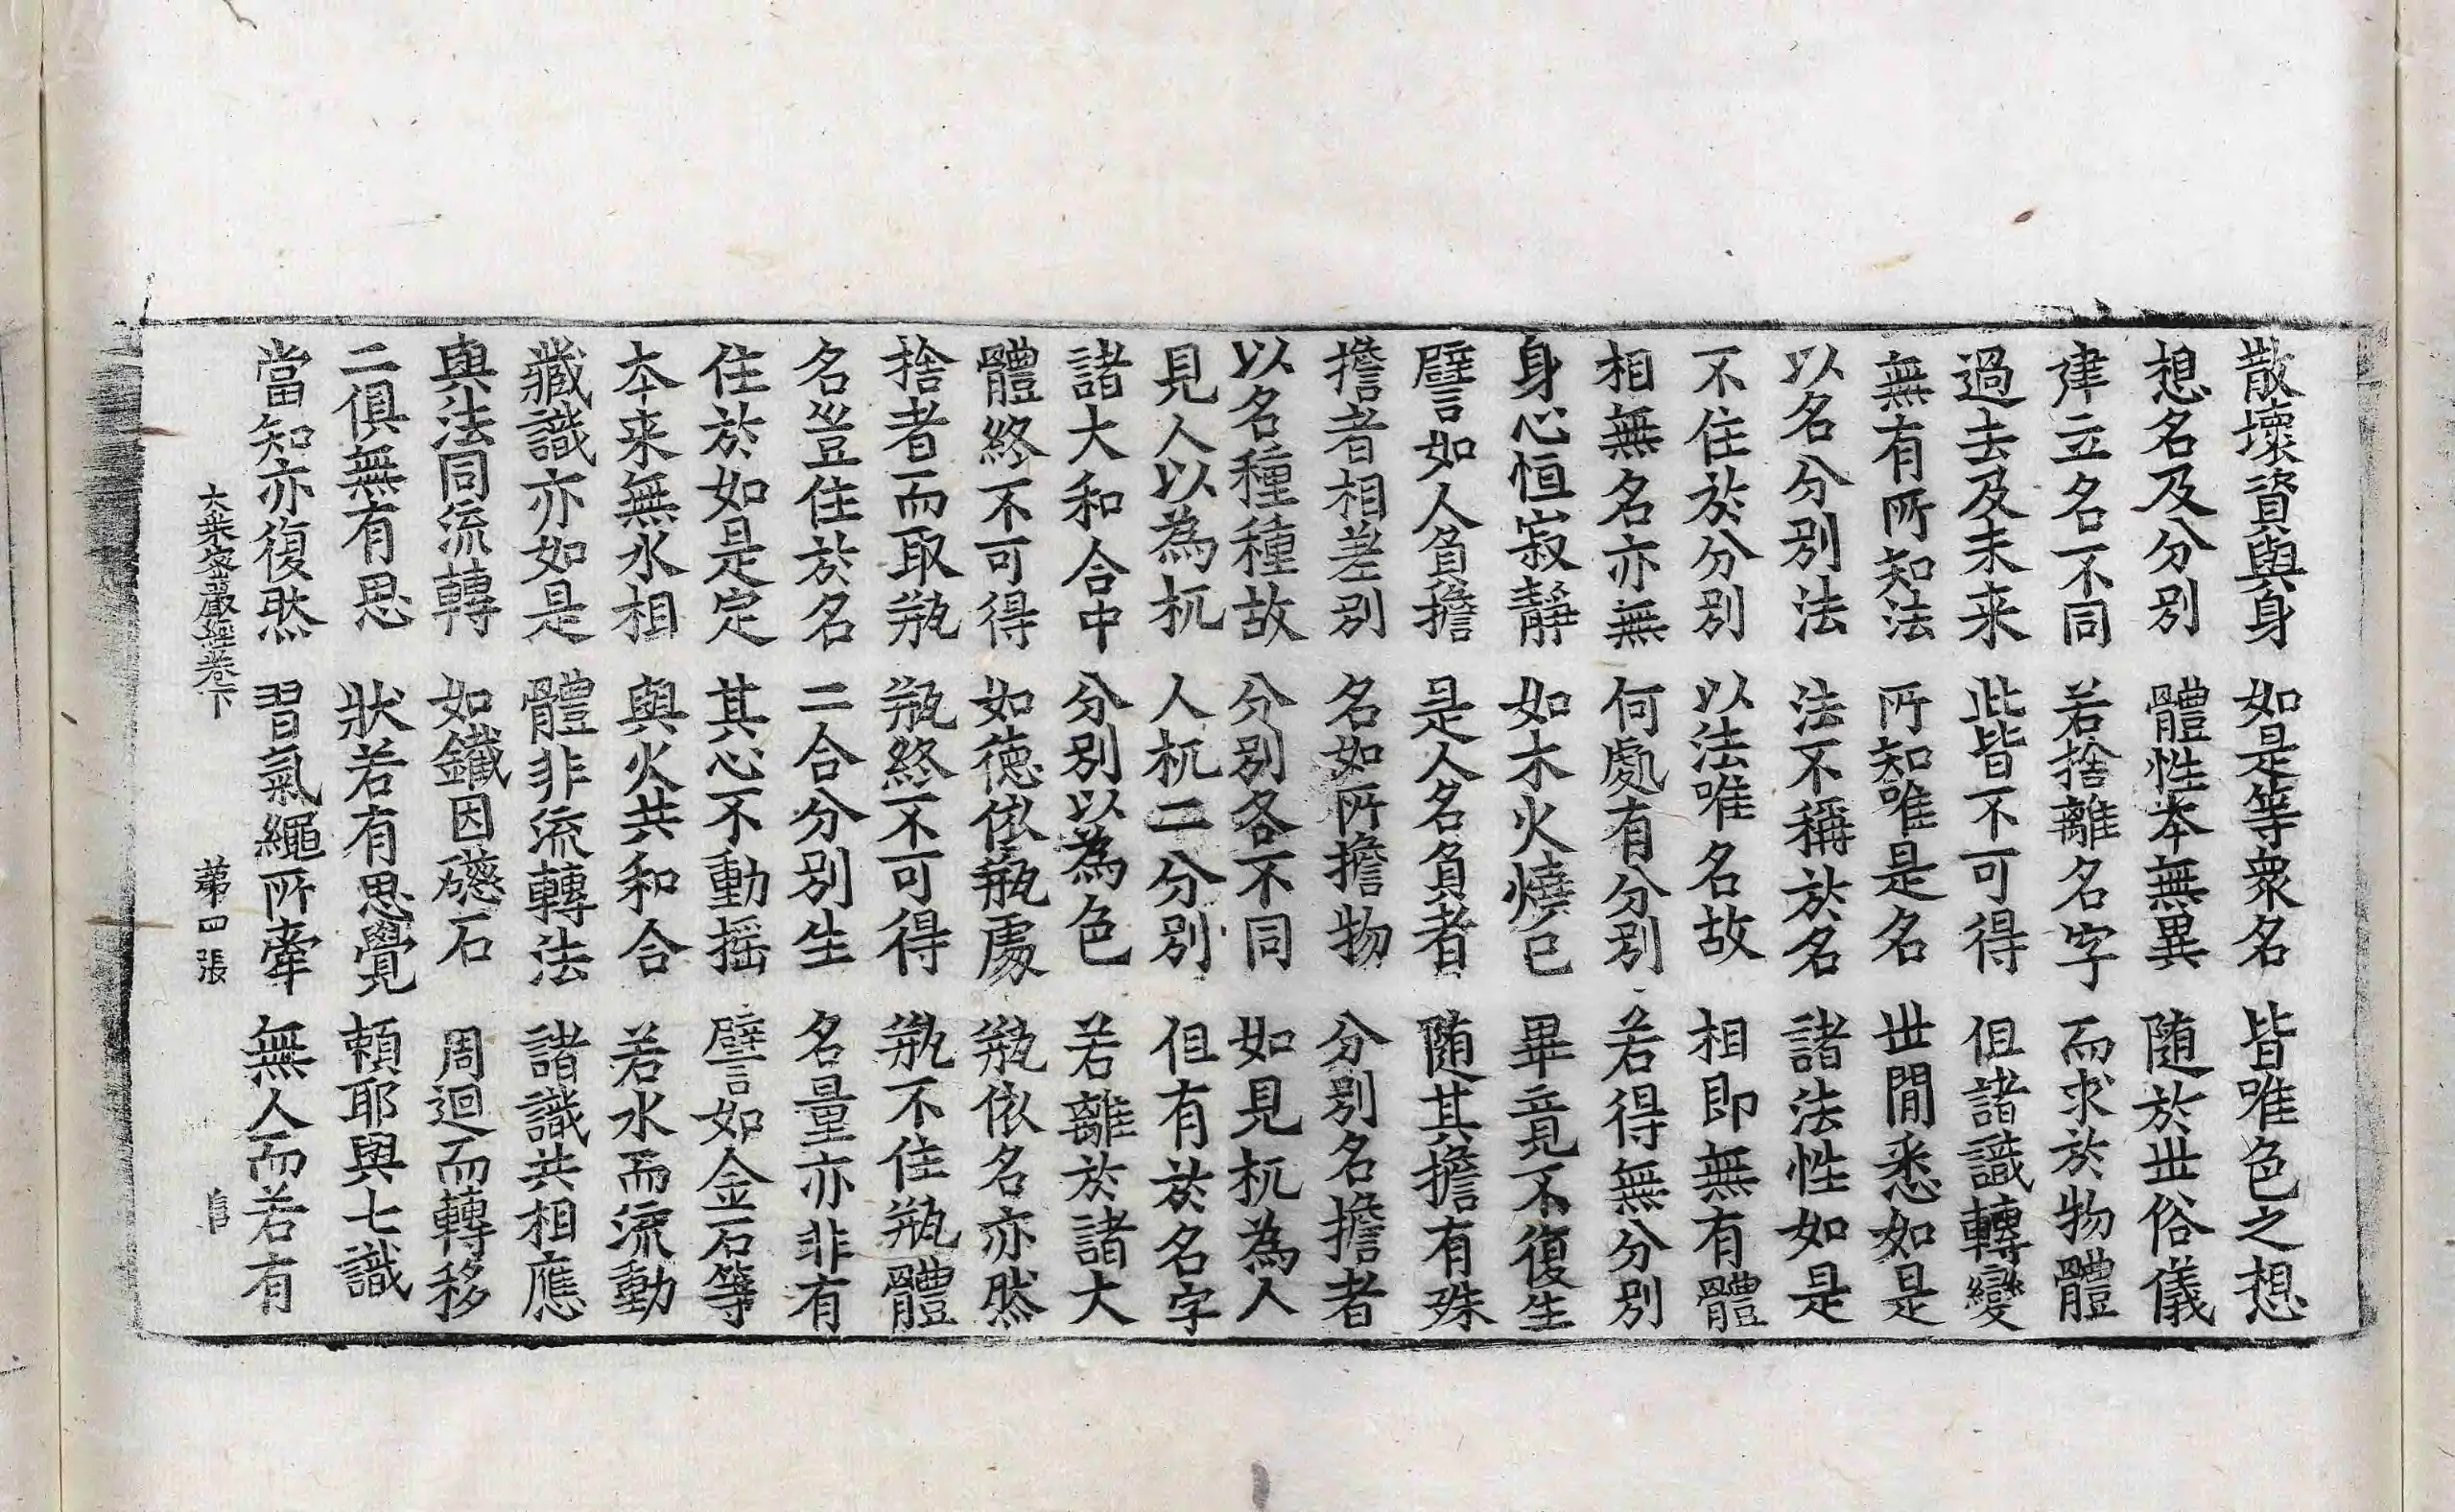 散壞資與身　如是等衆名　皆唯色之想
想名及分別　體性本無異　随於世俗儀
建立名不同　若捨離名字　而求於物體
過去及未来　此皆不可得　但諸識轉變
無有所知法　所知唯是名　世閒悉如是
以名分別法　法不稱於名　諸法性如是
不住於分別　以法唯名故　相即無有體
相無名亦無　何處有分別　若得無分別
身心恒寂靜　如木火燒已　畢竟不復生
譬如人負擔　是人名負者　随其擔有殊
擔者相差別　名如所擔物　分別名擔者
以名種種故　分別各不同　如見杌為人
見人以為杌　人杌二分別　但有於名字
諸大和合中　分別以為色　若離於諸大
體終不可得　如德依瓶處　瓶依名亦然
捨者而取瓶　瓶終不可得　瓶不住瓶體
名豈住於名　二合分別生　名量亦非有
住於如是定　其心不動摇　譬如金石等
本来無水相　與火共和合　若水而流動
藏識亦如是　體非流轉法　諸識共相應
與法同流轉　如鐵因礠石　周迴而轉移
二俱無有思　狀若有思覺　頼耶與七識
當知亦復然　習氣繩所牽　無人而若有
大乗密嚴經卷下　第四張